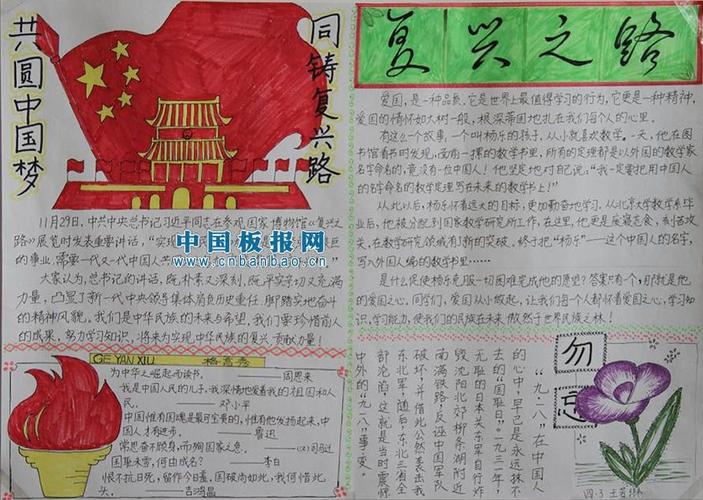 共圆中国梦
同铸复兴路
11月29日,中共中央总书记习近平同志在参观国家博物馆《复兴之
路》展览时发表重要讲话,“实现
的事业,需要一代又一代中国人共
大家认为,总书记的讲话,既朴素又深刻,既平实亲切又充满
力量,凸显了新一代中央领导集体肩负历史重任、脚踏实地奋斗
的精神风貌。我们是中华民族的未来与希望,我们要珍惜前人
的成果,努力学习知识,将来为实现中华民族的复兴贡献力量!
中国板报网
www.cnbanbao.cn
GE YAN XIU 格言秀
为中华之崛起而读书。 ——周恩来
我是中国人民的儿子,我深情地爱着我的祖国和人
民。 ——邓小平
中国惟有国魂是最可宝贵的,惟有他发扬起来,中
国人才有进步。 ——鲁迅
常思奋不顾身,而殉国家之急。 ——(汉)司马迁
国耻未雪,何由成名? ——李白
恨不抗日死,留作今日羞。国破尚如此,我何惜此
头。 ——吉鸿昌
复兴之路
爱国,是一种品质,它是世界上最值得学习的行为,它更是一种精神,
爱国的情怀如大树一般,根深蒂固地扎在我们每个人的心里。
有这么一个故事,一个叫杨乐的孩子,从小就喜欢数学。一天,他在图
书馆看书时发现,面前一摞的数学书里,所有的定理都是以外国的数学家
名字命名的,竟没有一位中国人!他坚定地对自己说:“我一定要把用中国人
的名字命名的数学定理写在未来的数学书上!”
从此以后,杨乐怀着远大的目标,更加勤奋地学习,从北京大学数学系毕业
后,他被分配到国家数学研究所工作,在这里,他更是废寝忘食,刻苦攻
关,在数学研究领域有了新的突破。终于把“杨乐”——这个中国人的名字,
写入外国人编的数学书里。
是什么促使杨乐克服一切困难完成他的愿望?答案只有一个,那就是他
的爱国之心。同学们,爱国从小做起,让我们每个人都怀着爱国之心,学习知
识,学习能力,使我们的民族在未来傲然于世界民族之林!
勿忘
“九·八”在中国人
的心中,早已是永远抹不
去的“国耻日”一九三一年,
无耻的日本关东军自行炸
毁沈阳北郊柳条湖附近
南满铁路反诬中国军队
破坏,并借此公然袭击我
东北军,随后,东北三省全
部沦陷,这就是当时震惊
中外的“九·八”事变。
四·3 王